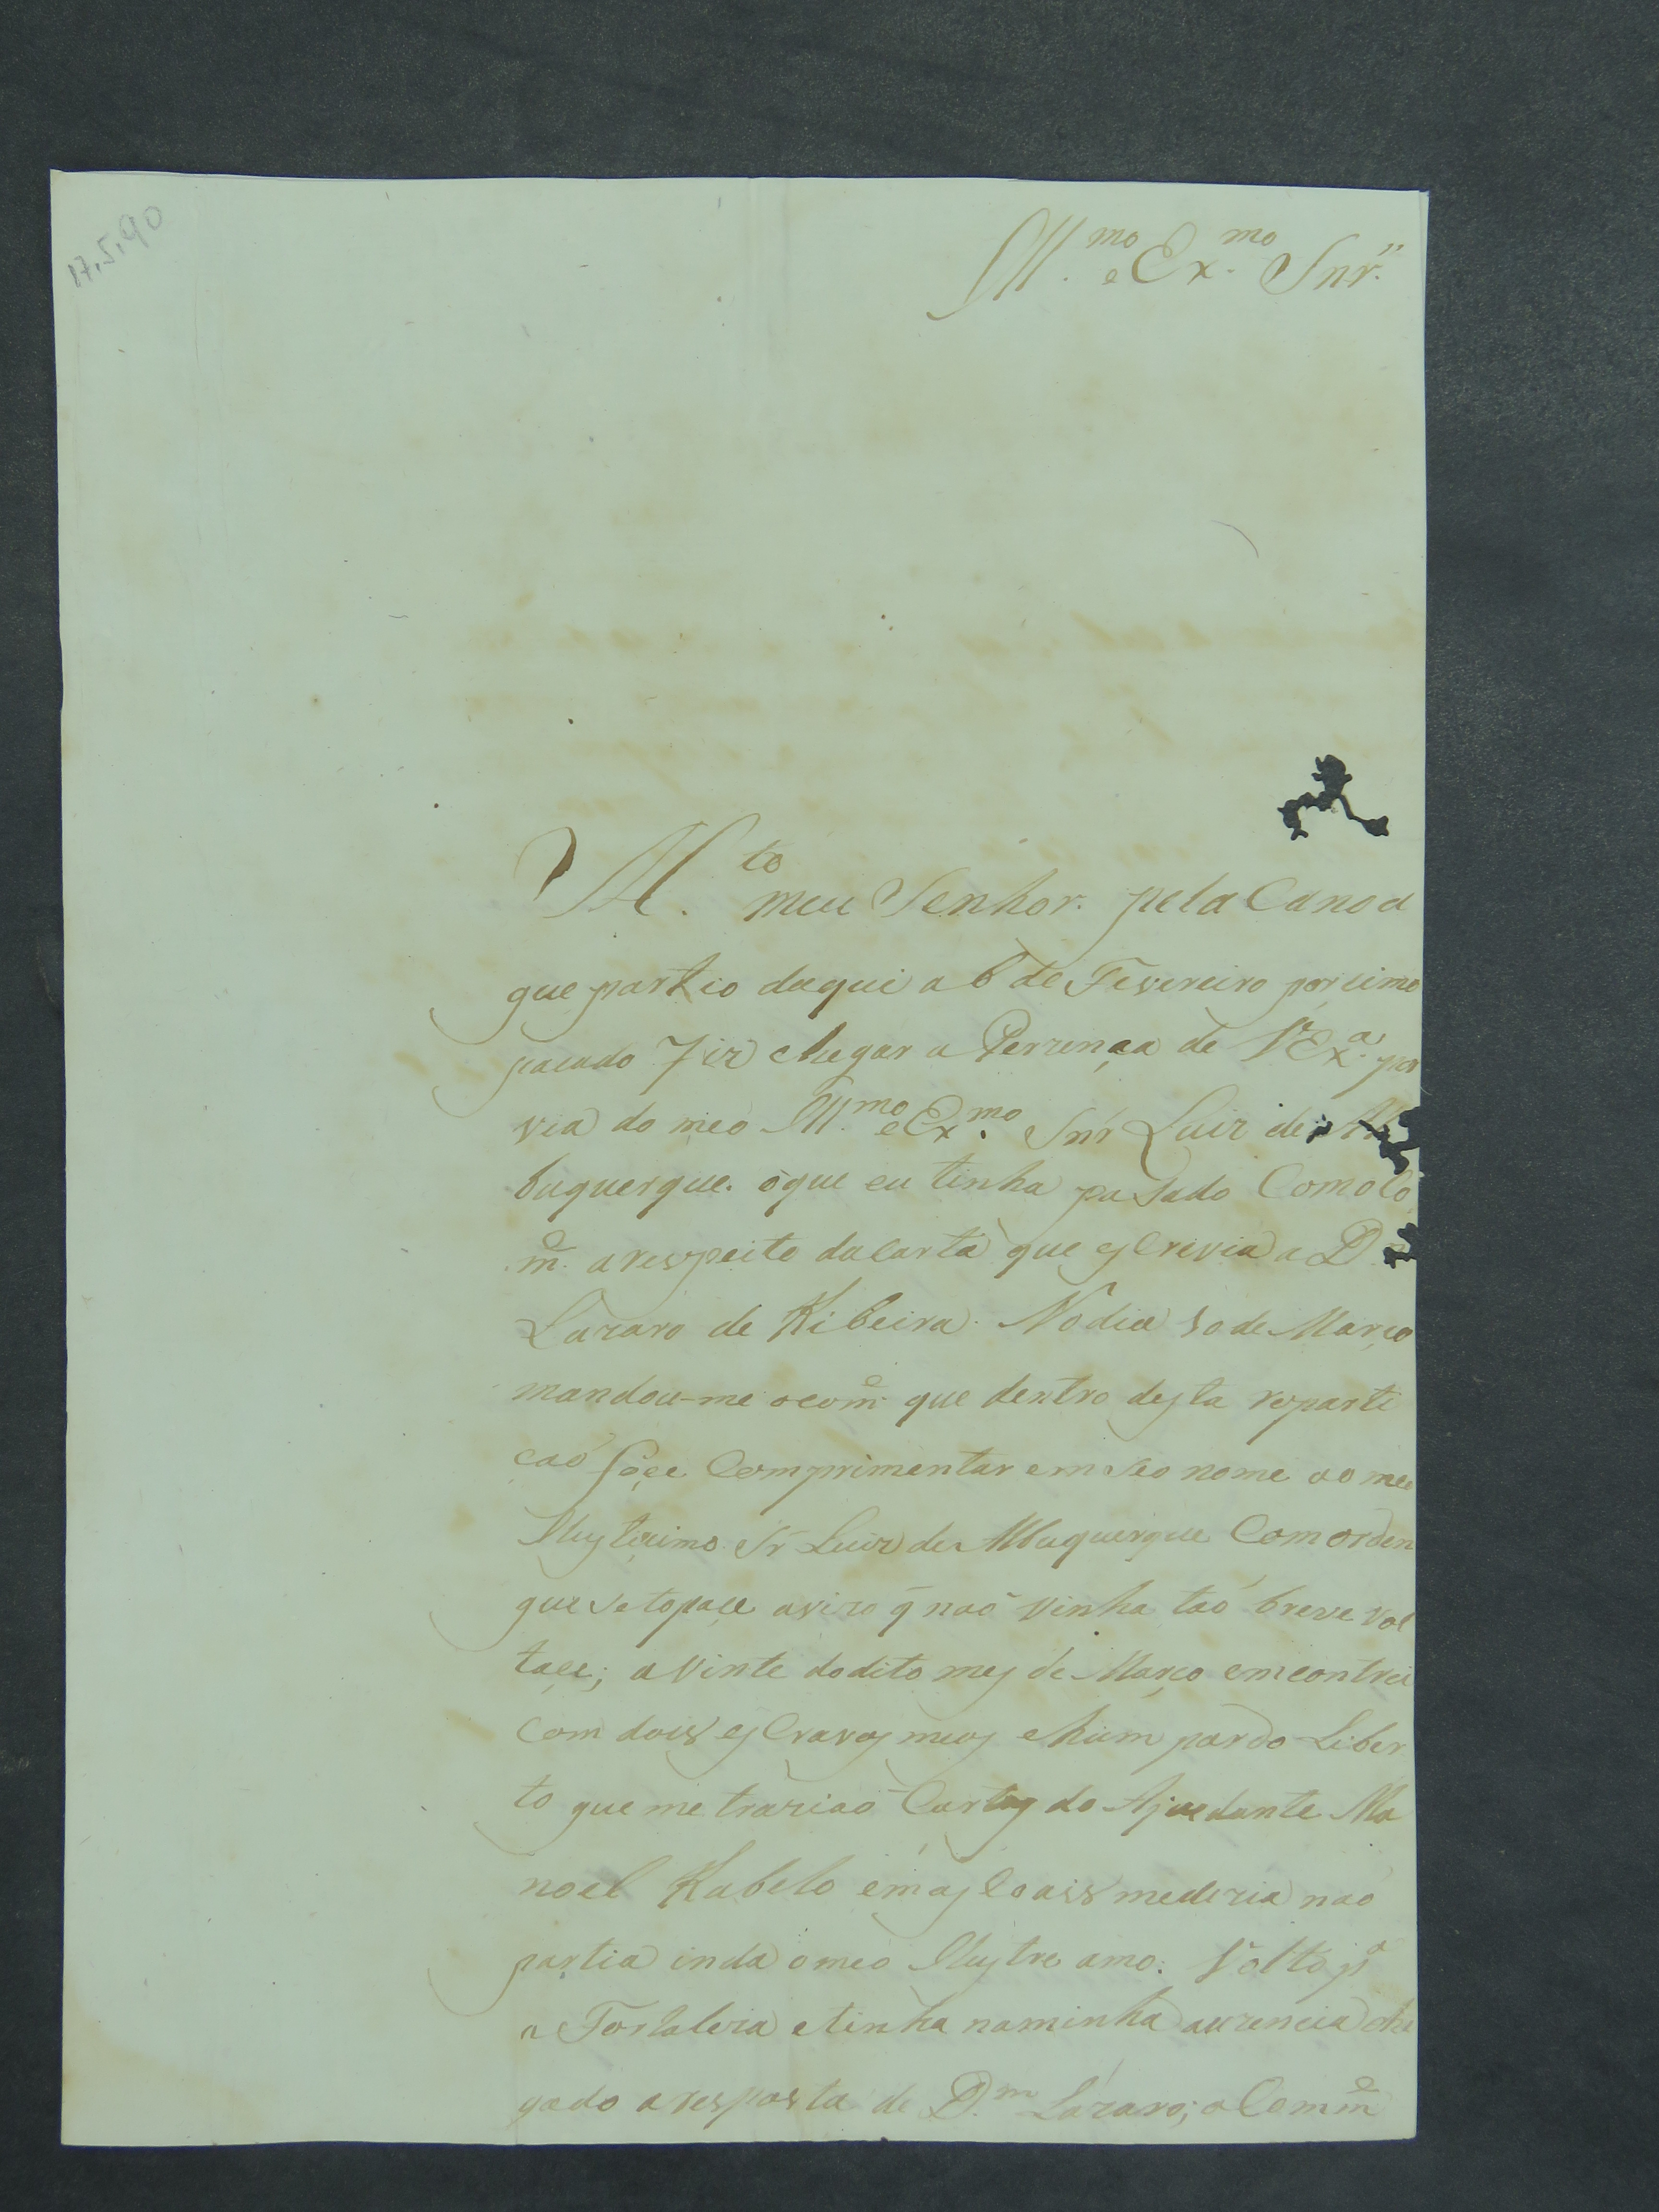 17.5.90
Ill.mo e Ex.mo Snr.
M.to meu Senhor. pela Canoa
que partio daqui a 6 de Fevereiro porcimo
pacado Fiz chegar a Perzença de V.Ex.a por
via do meo Ill.mo e Ex.mo Snr Luiz de Al
buquerque. o que eu tinha pasado Como Co
m.e a respeito da Carta que esCrevia a D.
Lazaro de Ribeira. No dia 10 de Março
mandou-me o com.e que dentro desta reparti
çaõ foçe Comprimentar em seo nome ao meu
Illustriçimo Sr Luiz de Albuquerque Com orden
que se topaçe avizo q̃ naõ vinha taõ breve vol
taçe; a vinte do dito mes de Março emcontrei
Com dois esCravos meos e hum pardo Liber
to que me traziaõ Cartas do Ajudante Ma
noel Rabelo em as Coais me dizia naõ
partia inda o meo Illustre amo. Volto p.a
a Fortaleza e tinha na minha auzencia che
gado a resposta de D.m Lazaro; o Comm.e